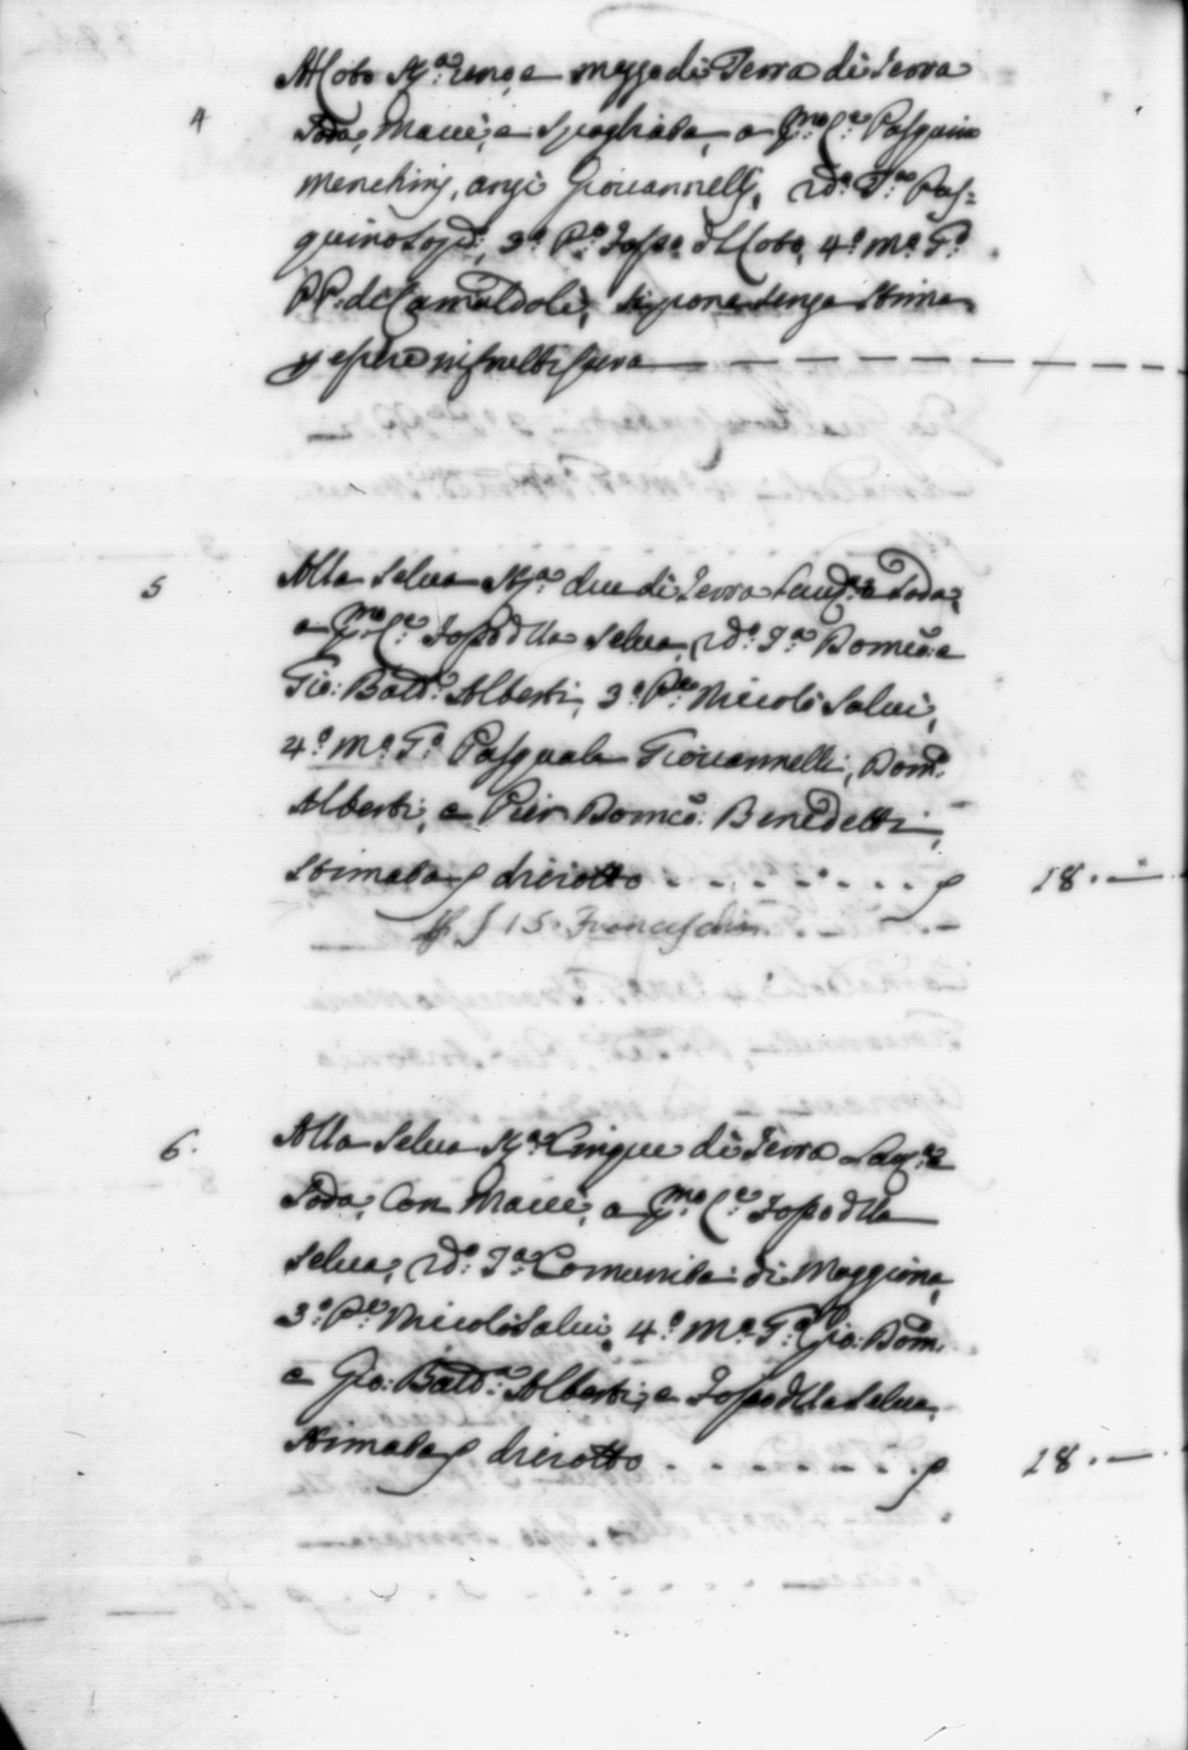 Al Coto St.ª uno, e mezzo di Terra di Terra
4 Soda, Maccie, e Spogliata, a P.mo C.e Pasquino
Menchini, anzi Giovannelli, 2do. T.ª Pas=
quino Sopd., 3.º P.e Fosso d'll Coto, 4.º M.º G.º
PP. di Camaldoli, si pone senza Stima
p esser infruttifera
5 Alla Selva St.ª due di Terra Lau.ª e Soda,
a P.mo C.e Fosso d'lla Selva, 2do. T.ª Domco: e
Gio: Batt.ª Alberti, 3.º P.e Niccolò Salvi,
4.º M.º G.º Pasquale Giovannelli, Dom.
Alberti, e Pier Domco: Benedetti,
Stimata p diciotto . . . . . . . . p 18. —
15. Franceschin
6. Alla Selva St.ª Cinque di Terra Lau.ª e
Soda, Con Maccie, a P.mo C.e Fosso d'lla
Selva, 2do. T.ª Comunita di Moggiona,
3.º P.e Niccolò Salvi, 4.º M.º G.º Gio: Dom.
e Gio: Batt.ª Alberti, e Fosso d'lla Selva,
Stimata p diciotto . . . . . . . . p 18. —